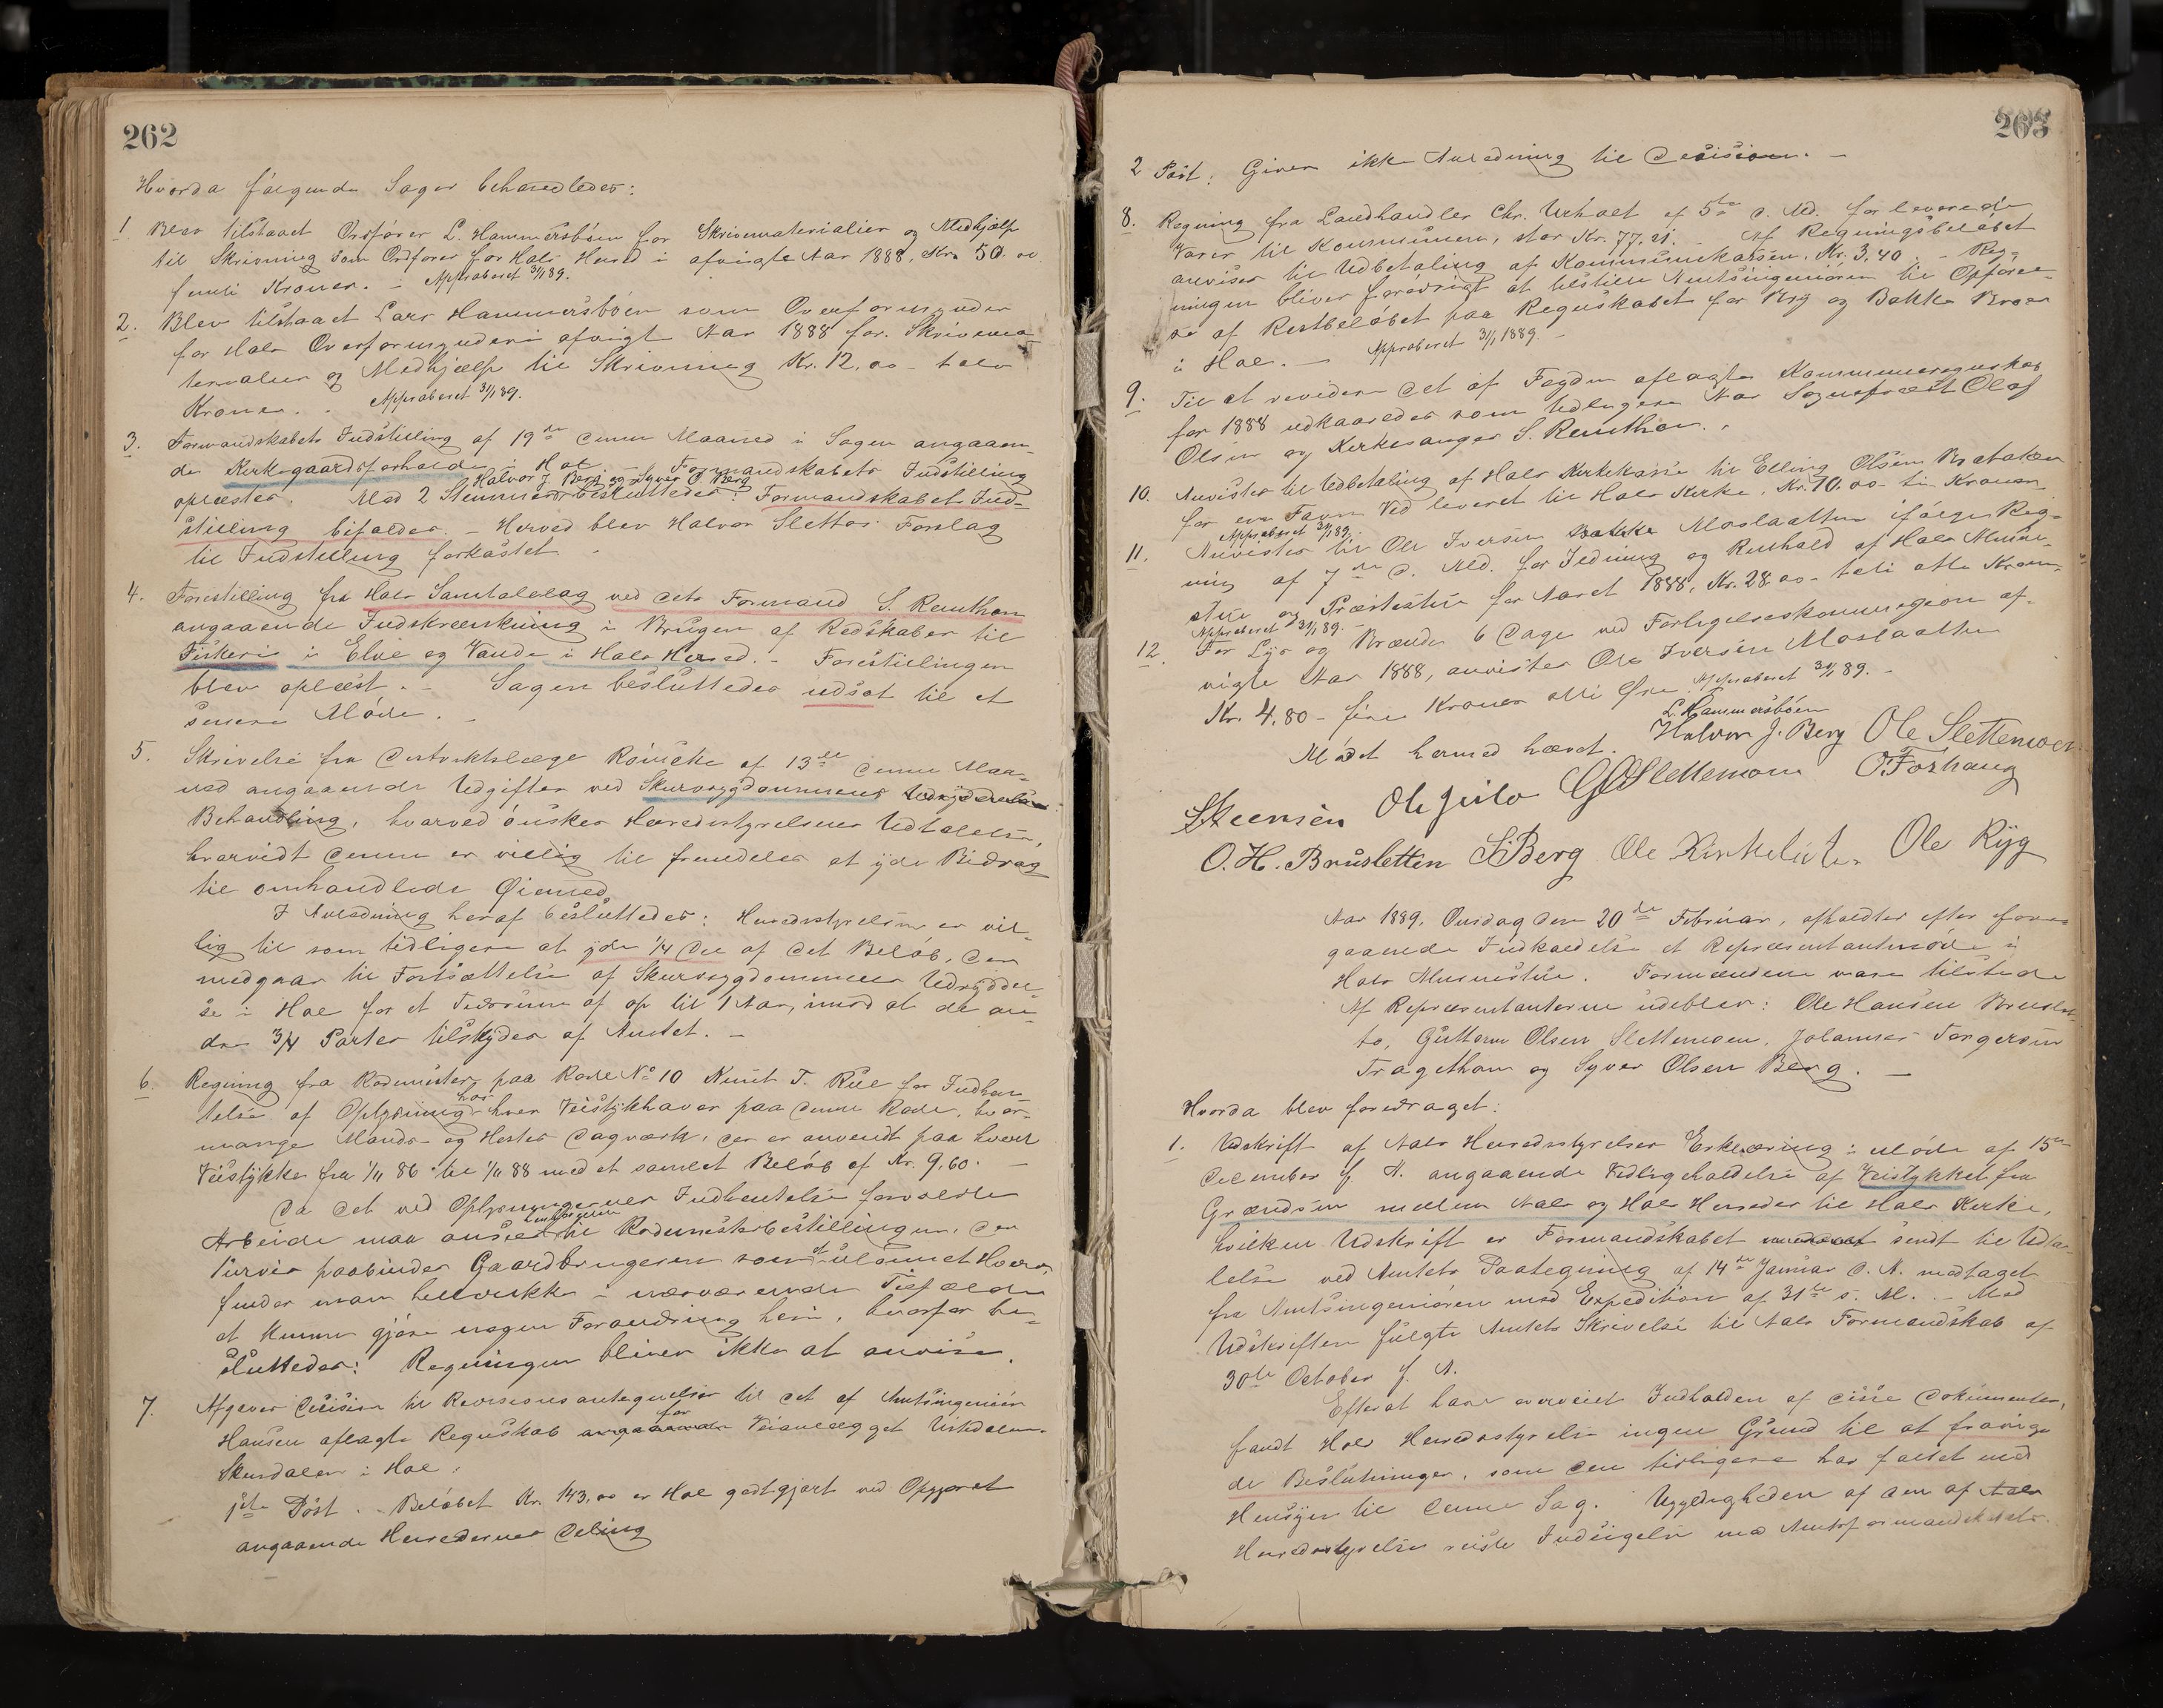 262
Hvorda følgende Sager behandledes:
1. Blev tilstaaet Ordfører L. Hammersbøen for Skrivematerialier og Medhjælp
til Skrivning som Ordfører for Hols Herred i afvigte Aar 1888, Kr. 50.00
femti Kroner. – Approberet 31/1 89.
2. Blev tilstaaet Lars Hammersbøen som Overformynder
for Hols Overformynderi afvigte Aar 1888 for Skrivema-
terialier og Medhjælp til Skrivning Kr. 12,00 – tolv
Kroner. – Approberet 31/1 89.
3. Formandskabets Indstilling af 19de denne Maaned i Sagen angaaen-
de Kirkegaardsforholde i Hol. Formandskabets Indstilling
Halvor J. Berg og Syver O. Berg
oplæstes. Mod 2 Stemmer besluttedes: Formandskabets Ind-
stilling bifaldes. – Herved blev Halvor Slettos Forslag
til Indstilling forkastet. –
4. Forestilling fra Hols Samtalelag ved dets Formand S. Reinthon
angaaende Indskrænkning i Brugen af Redskaber til
Fiskeri i Elve og Vande i Hols Herred. – Forestillingen
blev oplæst. – Sagen besluttedes udsat til et
senere Møde. –
5. Skrivelse fra Distriktslæge Röincke af 13de denne Maa-
ned angaaende Udgifter ved Skurvsygdommens
Behandling, hvorved ønskes Herredsstyrelsens Udtalelse,
hvorvidt denne er villig til fremdeles at yde Bidrag
til omhandlede Øiemed.
I Anledning heraf besluttedes: Herredsstyrelsen er vil-
lig til som tidligere at yde 1/4 Del af det Beløb, der
medgaar til Fortsættelse af Skurvsygdommens Udryddel-
se i Hol for et Tidsrum af op til 1 Aar, imod at de an-
dre 3/4 Parter tilskydes af Amtet. –
6. Regning fra Rodemester paa Rode No 10 Knut T. Rue for Indhen-
telse af Oplysning hos hver Veistykhaver paa denne Rode, hvor-
mange Mands- og Hestes Dagværk, der er anvendt paa hvert
Veistykke fra 1/11 86 til 1/11 88 med et samlet Beløb af Kr. 9,60. –
Da det ved Oplysningernes Indhentelse forvoldte
Arbeide maa ansees henhørende til Rodemesterbestillingen, der
Turvis paabindes Gaardbrugeren som et ulønnet Hverv,
finder man hellerikke i nærværende Tilfælde
at kunne gjøre nogen Forandring heri, hvorfor be-
sluttedes: Regningen bliver ikke at anvise.
7. Afgaves Decision til Revisionsantegnelser til det af Amtsingeniør
Hansen aflagte Regnskab for Veianlægget Ustedalen-
Skurdalen i Hol:
1ste Post. – Beløbet Kr. 143,00 er Hol godtgjort ved Opgjøret
angaaende Herredernes Deling
263
2 Post: Giver ikke Anledning til Decision. –
8. Regning fra Landhandler Chr. Wehoel af 5te d. Md. for leverede
Varer til Kommunen, stor Kr. 77,21. – Af Regningsbeløbet
anvises til Udbetaling af Kommunekassen, Kr. 3,40. – Reg-
ningen bliver forøvrigt at tilstille Amtsingeniøren til Opførel-
se af Restbeløbet paa Regnskabet for Ryg og Bakke Broer
i Hol. – Approberet 31/1 1889. –
9. Til at revidere det af Fogden aflagte Kommuneregnskab
for 1888 udkaaredes som tidligere Aar Sogneprest Olaf
Olsen og Kirkesanger S. Reinthon. –
10. Anvistes til Udbetaling af Hols Kirkekasse til Elling Olsen Brataker
for en Favn Ved leveret til Hols Kirke, Kr. 10.00 – ti Kroner
Approberet 31/1 89.
11. Anvistes til Ole Iversen Bakke Moslaatten ifølge Reg-
ning af 7de d. Md. for Ildning og Renhold af Hols Munke-
stue og Præstestue for Aaret 1888, Kr. 28.00 – toti otte Kroner
Approberet 31/1 89. –
12. For Lys og Brænde 6 Dage ved Forligelseskommission af-
vigte Aar 1888, anvistes Ole Iversen Moslaatten
Kr. 4,80 – fire Kroner otti Øre. Approberet 31/1 89. –
Mødet hermed hævet.
L. Hammersbøen
Halvor J. Berg Ole Slettemoen
S. Steensen Ole Juslo G O Slettemoen O. Foshaug
O. H. Brusletten S Berg Ole Kirkeluten Ole Ryg
Aar 1889, Onsdag den 20de Februar, afholdtes efter fore-
gaaende Indkaldelse et Repræsentantmøde i
Hols Munkestue. Formændene vare tilstede
Af Repræsentanterne udeblev: Ole Hansen Bruslet-
to, Guttorm Olsen Slettemoen, Johannes Torgersen
Tragethon og Syver Olsen Berg. –
Hvorda blev foredraget:
1. Udskrift af Aals Herredsstyrelses Erklæring i Møde af 15de
December f. A. angaaende Vedligeholdelse af Veistykket fra
Grændsen mellem Aals og Hols Herreder til Hols Kirke,
hvilken Udskrift er Formandskabet sendt til Udta-
lelse ved Amtets Paategning af 14de Januar d. A. modtaget
fra Amtsingeniøren med Expedition af 31te s. M. – Med
Udskriften fulgte Amtets Skrivelse til Aals Formandskab af
30te October f. A.
Efterat have overveiet Indholden af disse Dokumenter,
fandt Hols Herredsstyrelse ingen Grund til at fravige
de Beslutninger, som den tidligere har fattet med
Hensyn til denne Sag. Ugyldigheden af den af Aals
Herredsstyrelse reiste Indsigelse mod Amtsformandskabets